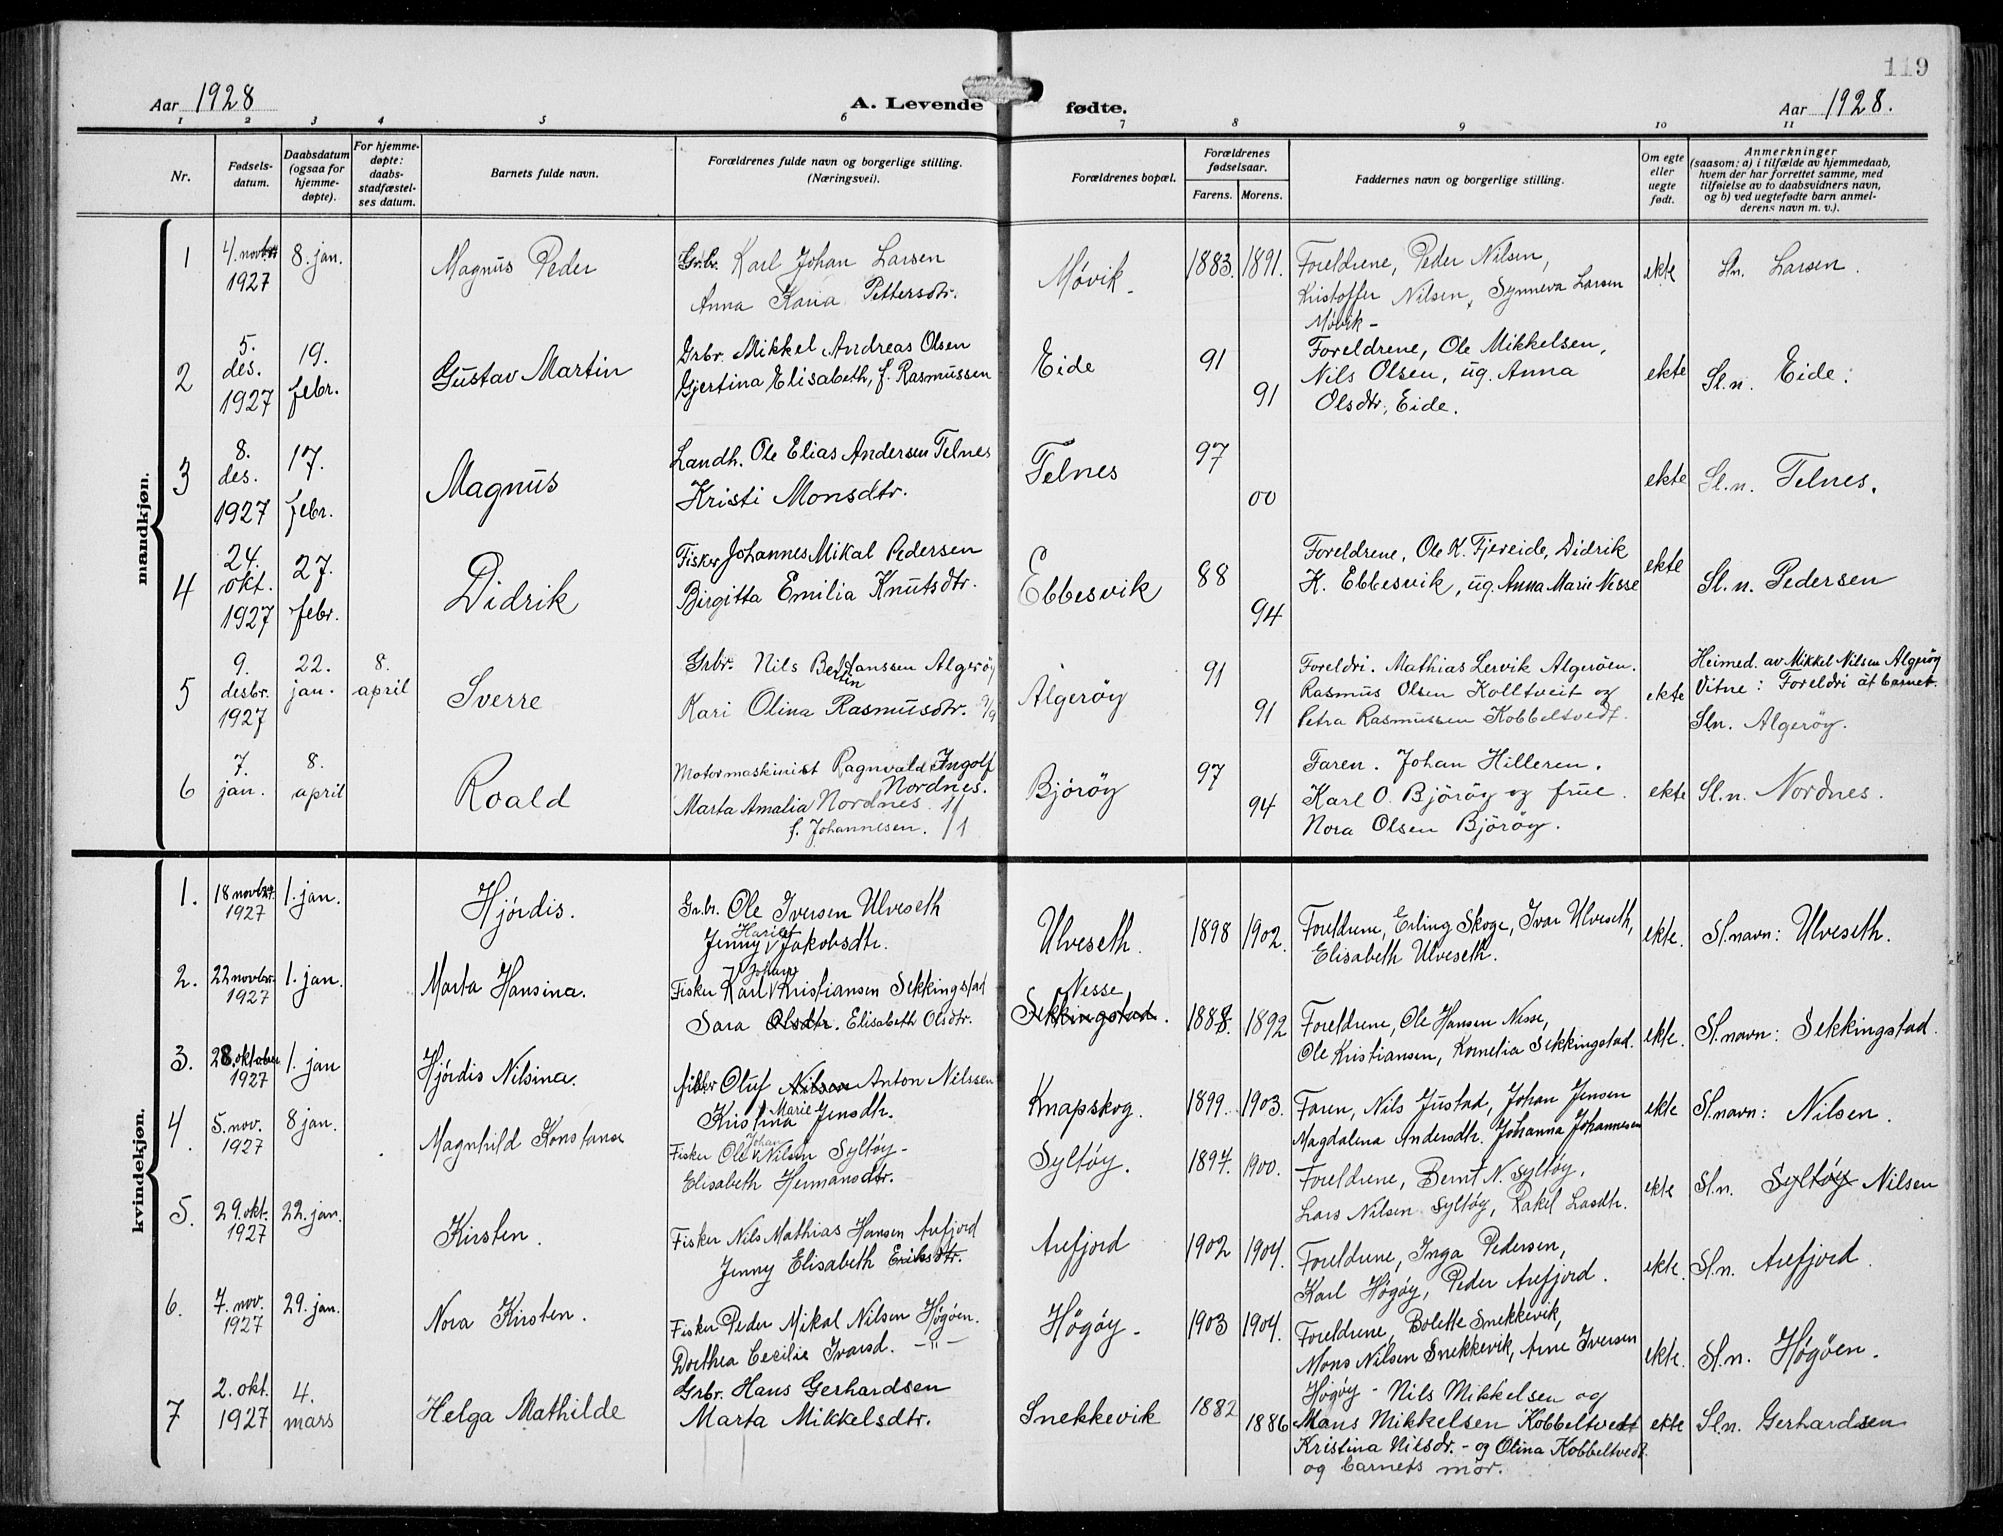 119
Aar 1928
A. Levende fødte.
Aar 1928.
1 2 3 4 5 6 7 8 9 10 11
Nr.
Fødsels-
datum.
Daabsdatum
(ogsaa for
hjemme-
døpte).
For hjemme-
døpte:
daabs-
stadfæstel-
ses datum.
Barnets fulde navn.
Forældrenes fulde navn og borgerlige stilling.
(Næringsvei).
Forældrenes bopæl.
Forældrenes
fødselsaar.
Farens. Morens.
Faddernes navn og borgerlige stilling.
Om egte
eller
uegte
født.
Anmerkninger
(saasom: a) i tilfælde av hjemmedaab,
hvem der har forrettet samme, med
tilføielse av to daabsvidners navn,
og b) ved uegtefødte barn anmel-
derens navn m. v.).
mandkjøn.
1
4. novbr.
1927
8. jan.
Magnus Peder
Grbr. Karl Johan Larsen
Anna Karia Pettersdtr.
Møvik
1883. 1891.
Foreldrene, Peder Nilsen,
Kristoffer Nilsen, Synneva Larsen
Møvik -
ekte
Sln. Larsen.
2
5.
des.
1927
19.
febr.
Gustav Martin
Grbr. Mikkel Andreas Olsen
Gjertina Elisabeth, f. Rasmussen
Eide
91
91
Foreldrene, Ole Mikkelsen,
Nils Olsen, ug. Anna
Olsdtr, Eide.
ekte
Sl.n. Eide.
3
8.
des.
1927
17.
febr.
Magnus
Landh. Ole Elias Andersen Telnes
Kristi Monsdtr.
Telnes
97
00
ekte
Sl.n. Telnes.
4
24.
okt.
1927
27.
febr.
Didrik
Fisker Johannes Mikal Pedersen
Birgitta Emilia Knutsdtr.
Ebbesvik
88
94
Foreldrene, Ole K. Fjereide, Didrik
K. Ebbesvik, ug. Anna Marie Nesse
ekte
Sl.n. Pedersen
5
9.
desbr.
1927
22.
jan.
8.
april
Sverre
Grbr. Nils Bertin Hanssen Algerøy
Kari Olina Rasmusdtr. 9/9
Algerøy
91
91
Foreldri. Mathias Lervik Algerøen.
Rasmus Olsen Kolltveit og
Petra Rasmussen Kobbeltvedt.
ekte
Heimed. av Mikkel Nilsen Algerøy
Vitne: Foreldri åt barnet.
Sln. Algerøy.
6
7.
jan.
8.
april
Roald
Motormaskinist Ragnvald Ingolf
Nordnes.
Marta Amalia Nordnes
f. Johannesen. 11/1
Bjørøy
97
94
Faren. Johan Hilleren.
Karl O. Bjørøy og frue.
Nora Olsen Bjørøy.
ekte
Sl.n. Nordnes.
kvindekjøn.
1.
18 novbr.
1927
1. jan.
Hjørdis.
Grbr. Ole Iversen Ulveseth
Jenny Hariet Jakobsdtr.
Ulveseth.
1898 1902.
Foreldrene, Erling Skoge, Ivar Ulveseth,
Elisabeth Ulveseth.
ekte.
Sl.navn: Ulveseth.
2.
22 novbr.
1927
1. jan.
Marta Hansina.
Fisker Karl Johan Kristiansen Sekkingstad
Sara Olsdtr. Elisabeth Olsdtr.
Nesse
Sekkingstad.
1888. 1892
Foreldrene, Ole Hansen Nesse,
Ole Kristiansen, Kornelia Sekkingstad.
ekte.
Sl.navn: Sekkingstad.
3.
28. oktober
1927
1. jan
Hjørdis Nilsina.
fisker Oluf Nilsen Anton Nilssen
Kristina Marie Jensdtr.
Knapskog.
1899. 1903.
Faren, Nils Justad, Johan Jensen
Magdalena Andersdtr. Johanna Johannesen
ekte
Sl.navn: Nilsen.
4.
5. nov.
1927
8 jan.
Magnhild Konstanse
Fisker Ole Johan Nilsen Syltøy -
Elisabeth Hermansdtr.
Syltøy.
1897. 1900.
Foreldrene, Bernt N. Syltøy,
Lars Nilsen Syltøy, Rakel Lasdtr.
ekte
Sl.n. Syltøy Nilsen
5.
29. okt.
1927
22. jan.
Kirsten.
Fisker Nils Mathias Hansen Arefjord
Jenny Elisabeth Eriksdtr.
Arefjord
1902 1904.
Foreldrene, Inga Pedersen,
Karl Høgøy, Peder Arefjord.
ekte.
Sl.n. Arefjord.
6.
7. nov.
1927
29. jan.
Nora Kirsten.
Fisker Peder Mikal Nilsen Høgøen.
Dorthea Cecilie Ivarsd. -"-
Høgøy -
1903 1904.
Foreldrene, Bolette Snekkevik,
Mons Nilsen Snekkevik, Arne Iversen
Høgøy -
ekte.
Sl.n. Høgøen.
7
2. okt.
1927
4.
mars
Helga Mathilde
Grbr. Hans Gerhardsen
Marta Mikkelsdtr.
Snekkevik
1882
1886
Nils Mikkelsen og
Mons Mikkelsen Kobbeltvedt
Kristina Nilsdr. - og Olina Kobbeltvedt
og barnets mor.
ekte
Sl.n. Gerhardsen